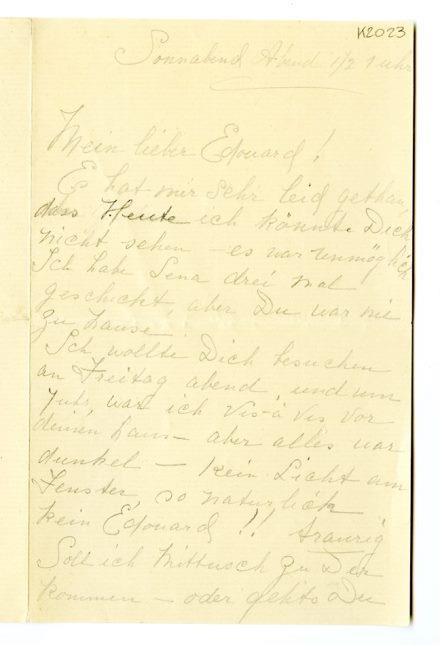 K2023
Sonnabend Abend 1/2 1 uhr
Mein lieber Edouard!
Es hat mir sehr leid gethan,
dass Heute ich könnte Dich
nicht sehen — es war unmöglich
Ich habe Lena drei mal
geschickt, aber Du war nie
zu hause
Ich wollte Dich besuchen
an Freitag abend, und um
uhr, war ich vis-à vis vor
deinen haus — aber alles war
dunkel — kein Licht am
Fenster, so naturlich
kein Edouard!! traurig
Soll ich Mittwsch zu Der
kommen — oder gehts Du